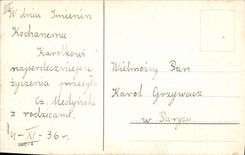 W dniu Imienin
Kochanemu
Karolkowi
najserdeczniejsze
życzenia przesyła
Cz. Medyński
z rodzicami.
36 r.
Wielmożny Pan
Karol Grzywacz
w Paryżu.